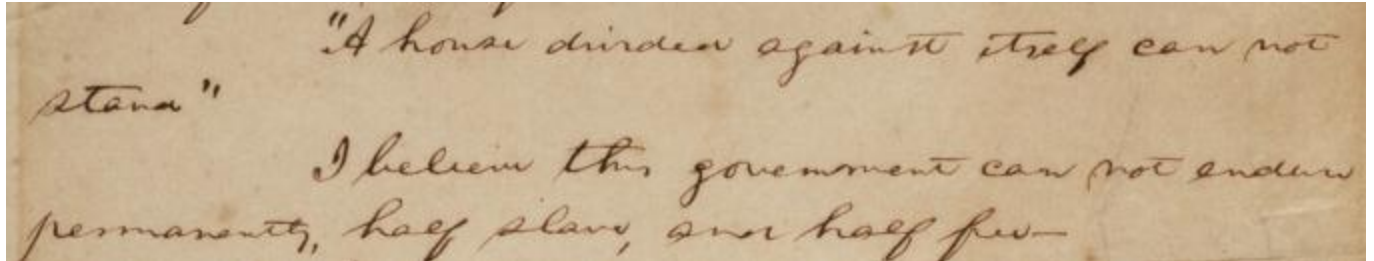 "A house divided against itself can not
stand"
I believe this government can not endure
permanently, half slave, and half free—